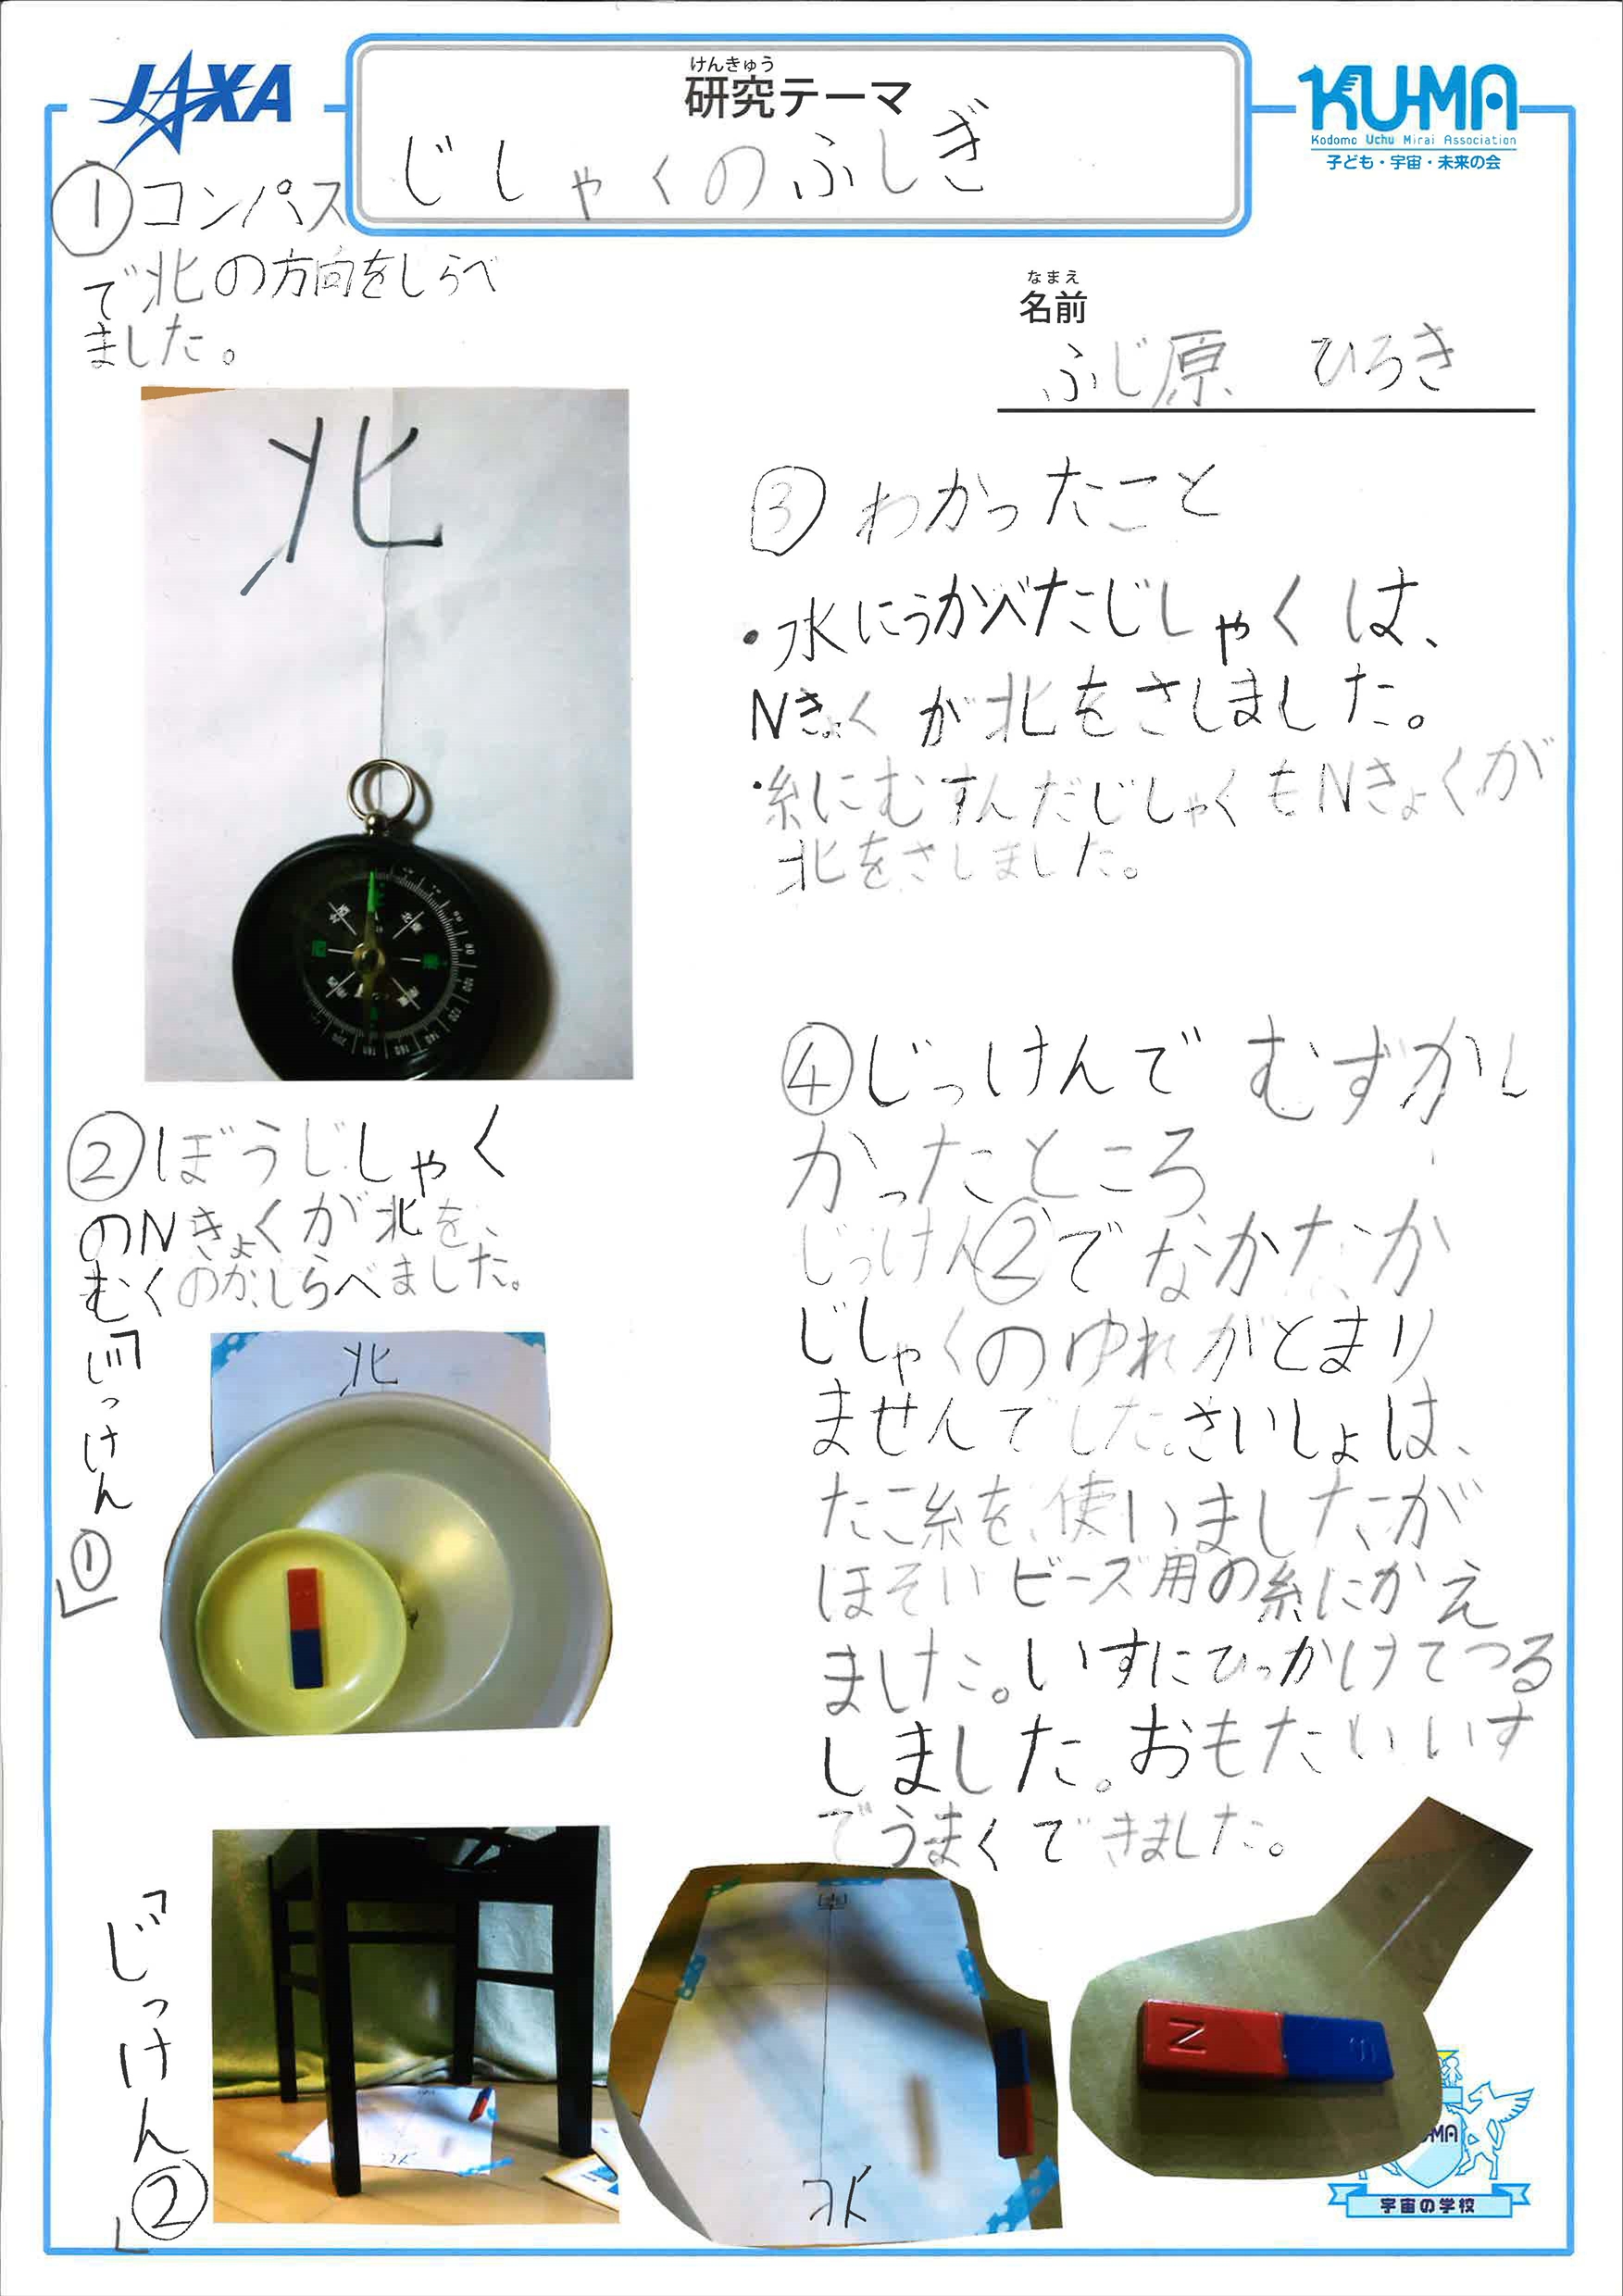 JAXA
けんきゅう
研究テーマ
じしゃくのふしぎ
KUMA
Kodomo Uchu Mirai Association
子ども・宇宙・未来の会
なまえ
名前
ふじ原 ひろき
①コンパス
で北の方向をしらべ
ました。
北
②ぼうじしゃく
のNきょくが北を、
むくのか、しらべました。
「じっけん①」
北
「じっけん②」
③わかったこと
・水にうかべたじしゃくは、
Nきょくが北をさしました。
・糸にむすんだじしゃくもNきょくが
北をさしました。
④じっけんでむずかし
かったところ
じっけん②でなかなか
じしゃくのゆれがとまり
ませんでした。さいしょは、
たこ糸を使いましたが
ほそいビーズ用の糸にかえ
ました。いすにひっかけてつる
しました。おもたいいす
でうまくできました。
北
N
宇宙の学校